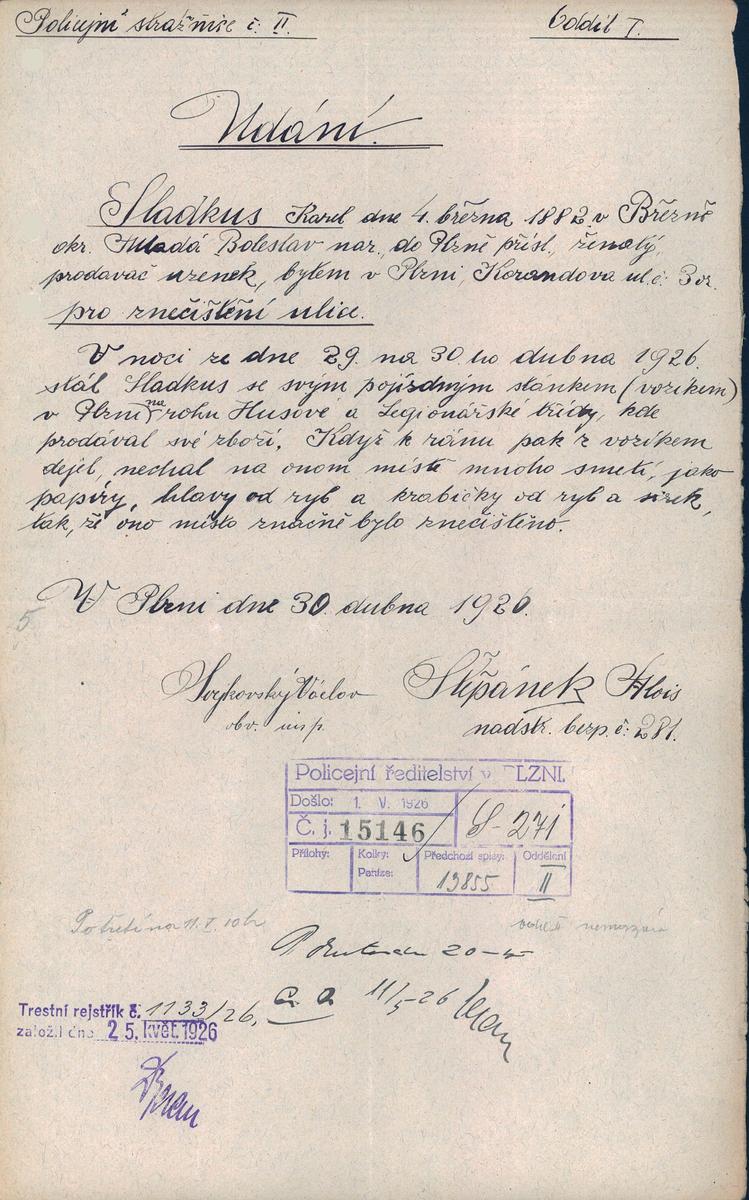 Policejní strážnice č. II.
Oddíl I.
Udání.
Sladkus Karel dne 4. března 1882 v Březně
okr. Mladá Boleslav nar., do Plzně přísl., ženatý,
prodavač uzenek, bytem v Plzni, Korandova ul. č. 3 or.
pro znečištění ulice.
V noci ze dne 29. na 30. ho dubna 1926.
stál Sladkus se svým pojízdným stánkem (vozíkem)
v Plzni na rohu Husové a Legionářské třídy, kde
prodával své zboží. Když k ránu pak z vozíkem
dejel, nechal na onom místě mnoho smetí, jako
papíry, hlavy od ryb a krabičky od ryb a sirek,
tak, že ono místo značně bylo znečištěno.
V Plzni dne 30. dubna 1926.
5
Svejkovský Václav
obv. insp.
Štěpánek Alois
nadstr. bezp. č: 281.
Policejní ředitelství v PLZNI.
Došlo: 1. V. 1926
Č. j. 15146
S-271
Přílohy:
Kolky:
Peníze:
Předchozí spisy:
13855
Oddělení
II
na 11. V. 10 h
20-
11/5 26
Trestní rejstřík č. 1133/26.
založil dne 25. květ. 1926